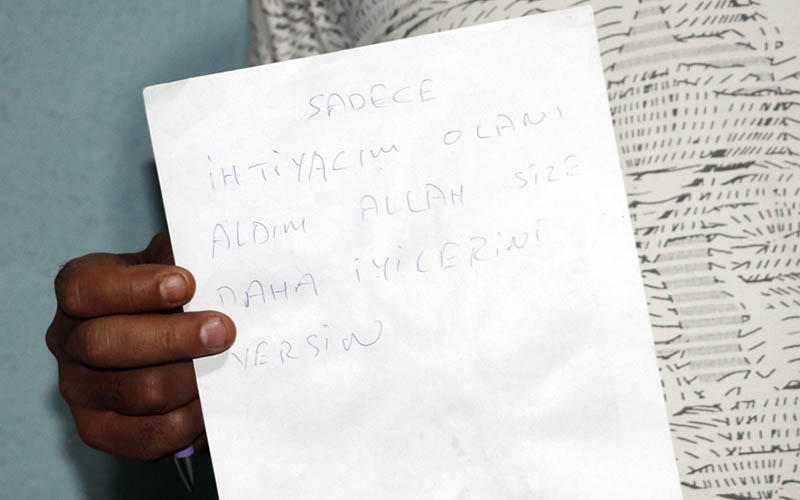 SADECE
İHTİYACIM OLANI
ALDIM ALLAH SİZE
DAHA İYİLERİNİ
VERSİN